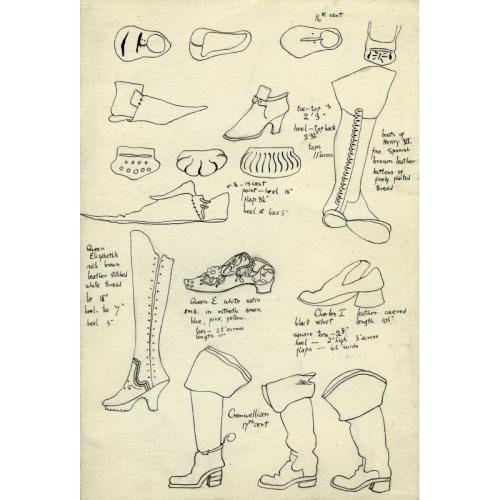 16th cent
toe-top
2' 3"
heel-top back
2 3/4"
tops
11" across
boots of
Henry VI
fine Spanish
brown leather
buttons of
finely plaited
thread
15 cent
point - heel 15"
flap 3 1/2"
heel at back 3"
Queen
Elizabeth's
rich brown
leather stitched
white thread
ht 18"
heel-toe 7"
heel 3"
Queen E. white satin
emb. in esthetic green,
blue, pink, yellow.
toes - 2 1/2" across
length 11"
Charles I leather covered
black velvet length 10 1/2".
square toes - 2 3/4"
heel - 2" high 3" across
flaps - 4 1/2" wide
Cromwellian
17th cent